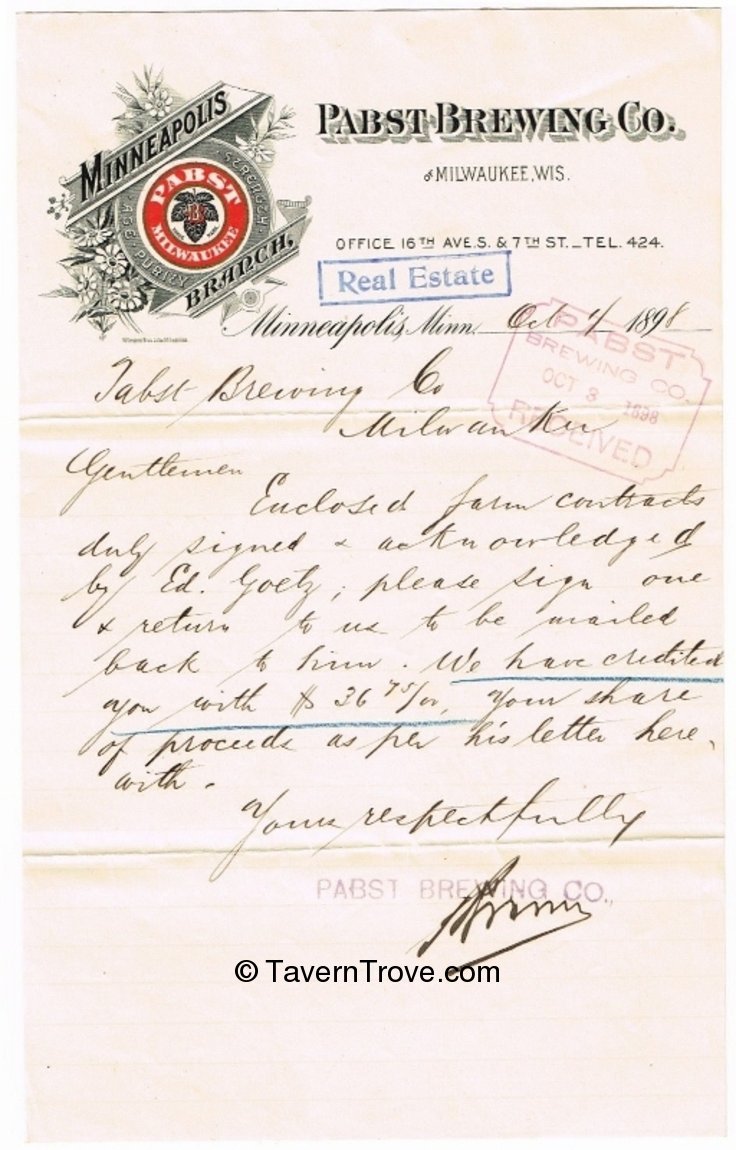 MINNEAPOLIS
BRANCH.
STRENGTH
AGE PURITY
PABST
B
MILWAUKEE
PABST BREWING CO.
of MILWAUKEE, WIS.
OFFICE 16TH AVE. S. & 7TH ST. _ TEL. 424.
Real Estate
Minneapolis, Minn. Oct 1898
PABST
BREWING CO.
OCT 3 1898
RECEIVED
Pabst Brewing Co
Milwaukee
Gentlemen
Enclosed farm contracts
duly signed & acknowledged
by Ed. Goetz, please sign one
& return to us to be mailed
back to him. We have credited
you with $ 36 75/00, your share
of proceeds as per his letter here-
with.
Yours respectfully
PABST BREWING CO.
© TavernTrove.com